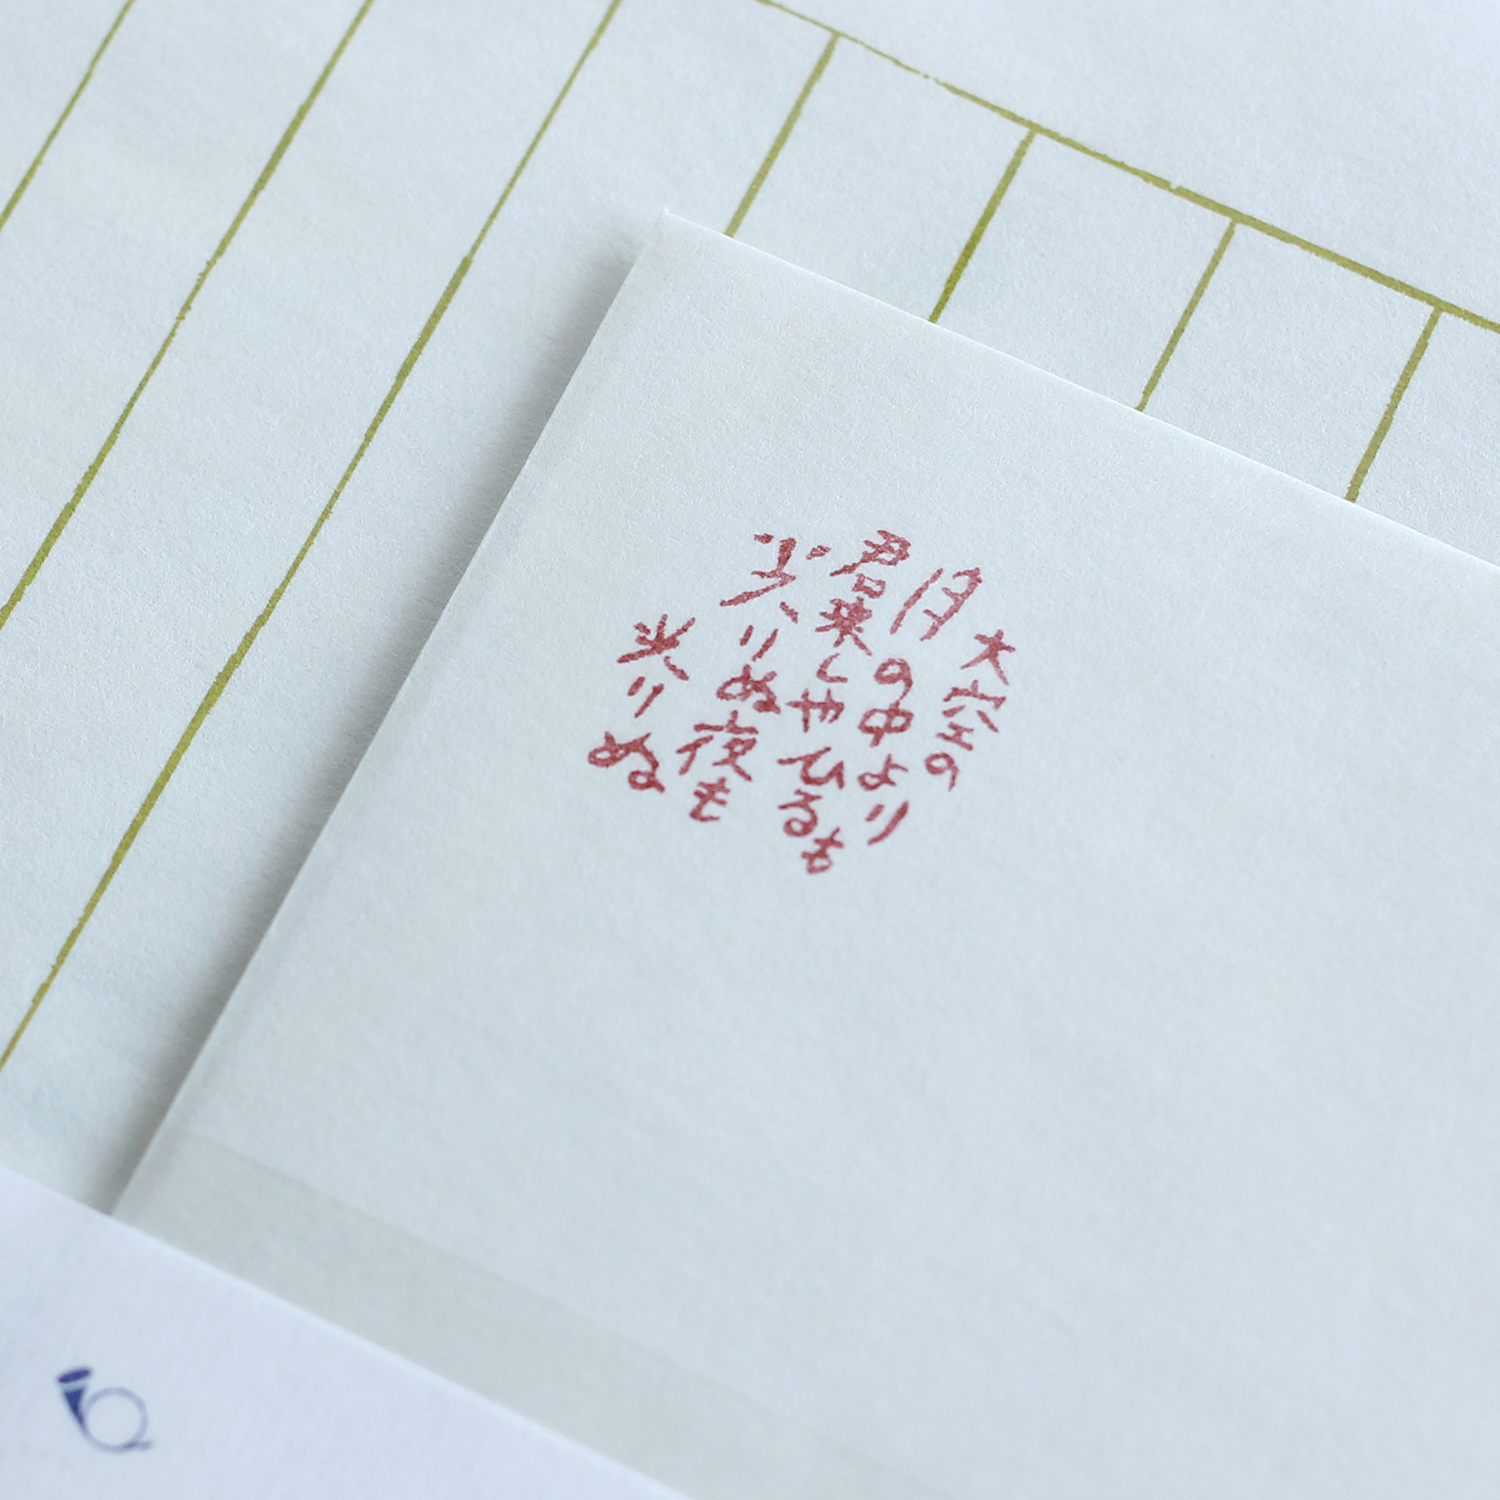 大空の
月の中より
君来しやひるも
光りぬ夜も
光りぬ